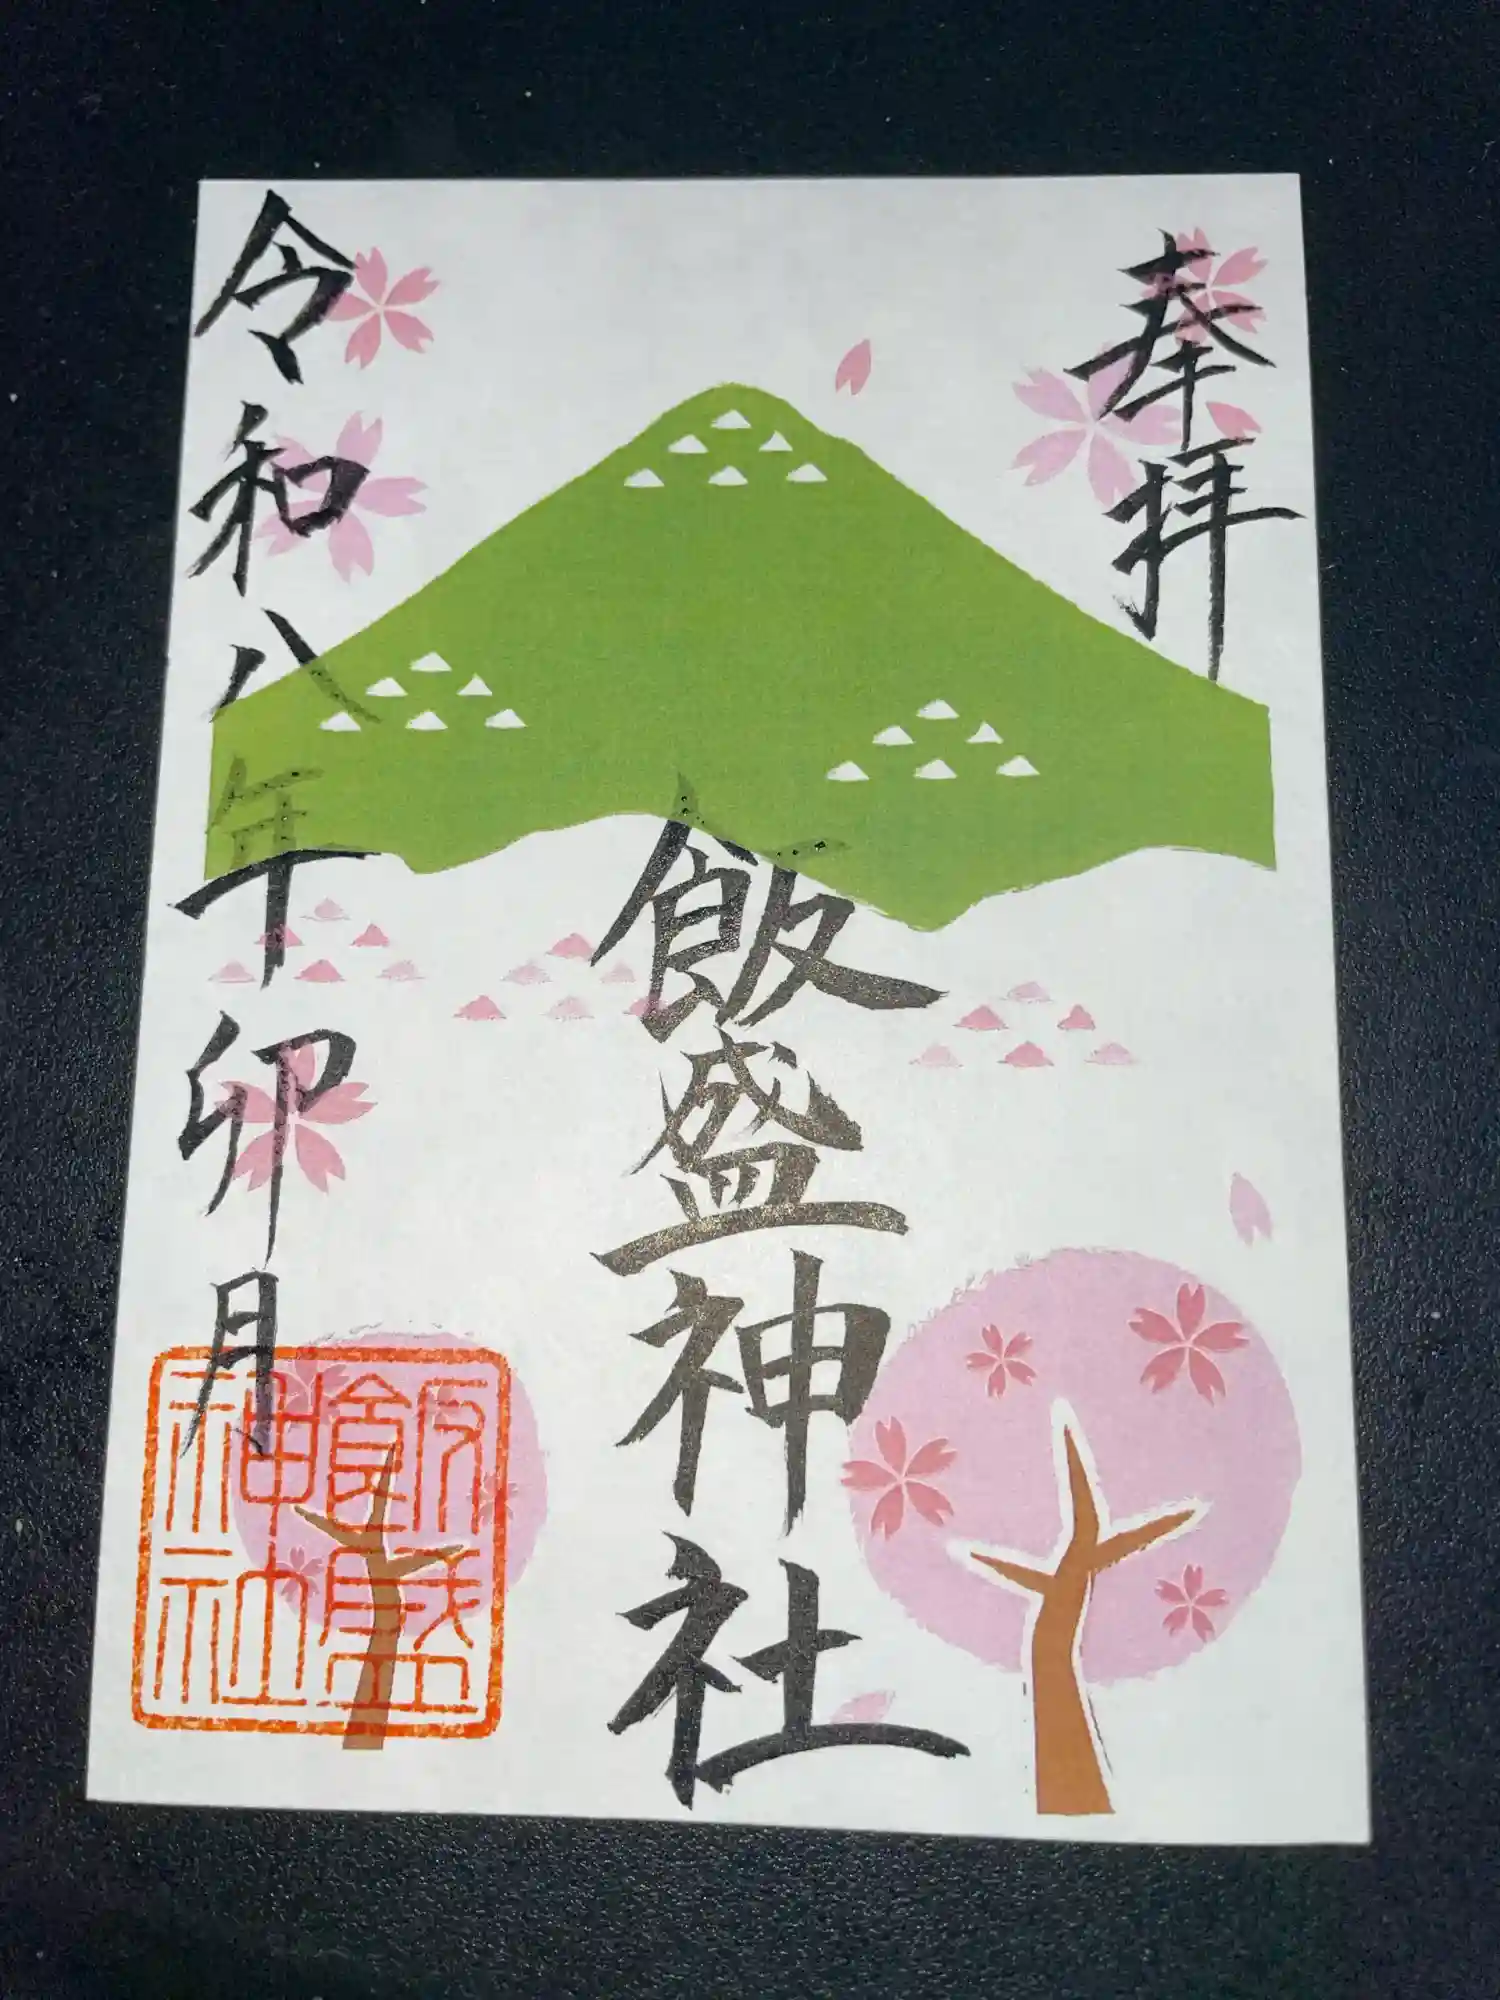 奉拝
飯盛神社
令和八年卯月
飯盛
神社